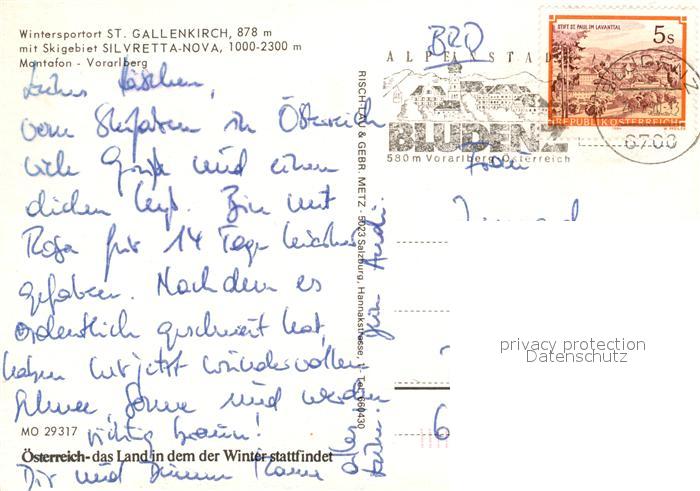 Wintersportort ST. GALLENKIRCH, 878 m
mit Skigebiet SILVRETTA-NOVA, 1000-2300 m
Montafon - Vorarlberg
Liebes Häschen,
vom Skifahren in Österreich
viele Grüße und einen
dicken Kuß. Bin mit
Rosa für 14 Tage hierher
gefahren. Nachdem es
ordentlich geschneit hat,
haben wir jetzt wundervollen
Schnee, Sonne und werden
richtig braun!
MO 29317
Österreich - das Land in dem der Winter stattfindet
Dir und Deinem
RISCHLAU & GEBR. METZ - 5023 Salzburg, Hannakstrasse, Tel. 660430
BRD
ALPENSTADT
BLUDENZ
580 m Vorarlberg Österreich
6700
STIFT ST. PAUL IM LAVANTTAL
5 S
REPUBLIK ÖSTERREICH
Frau
privacy protection
Datenschutz
6